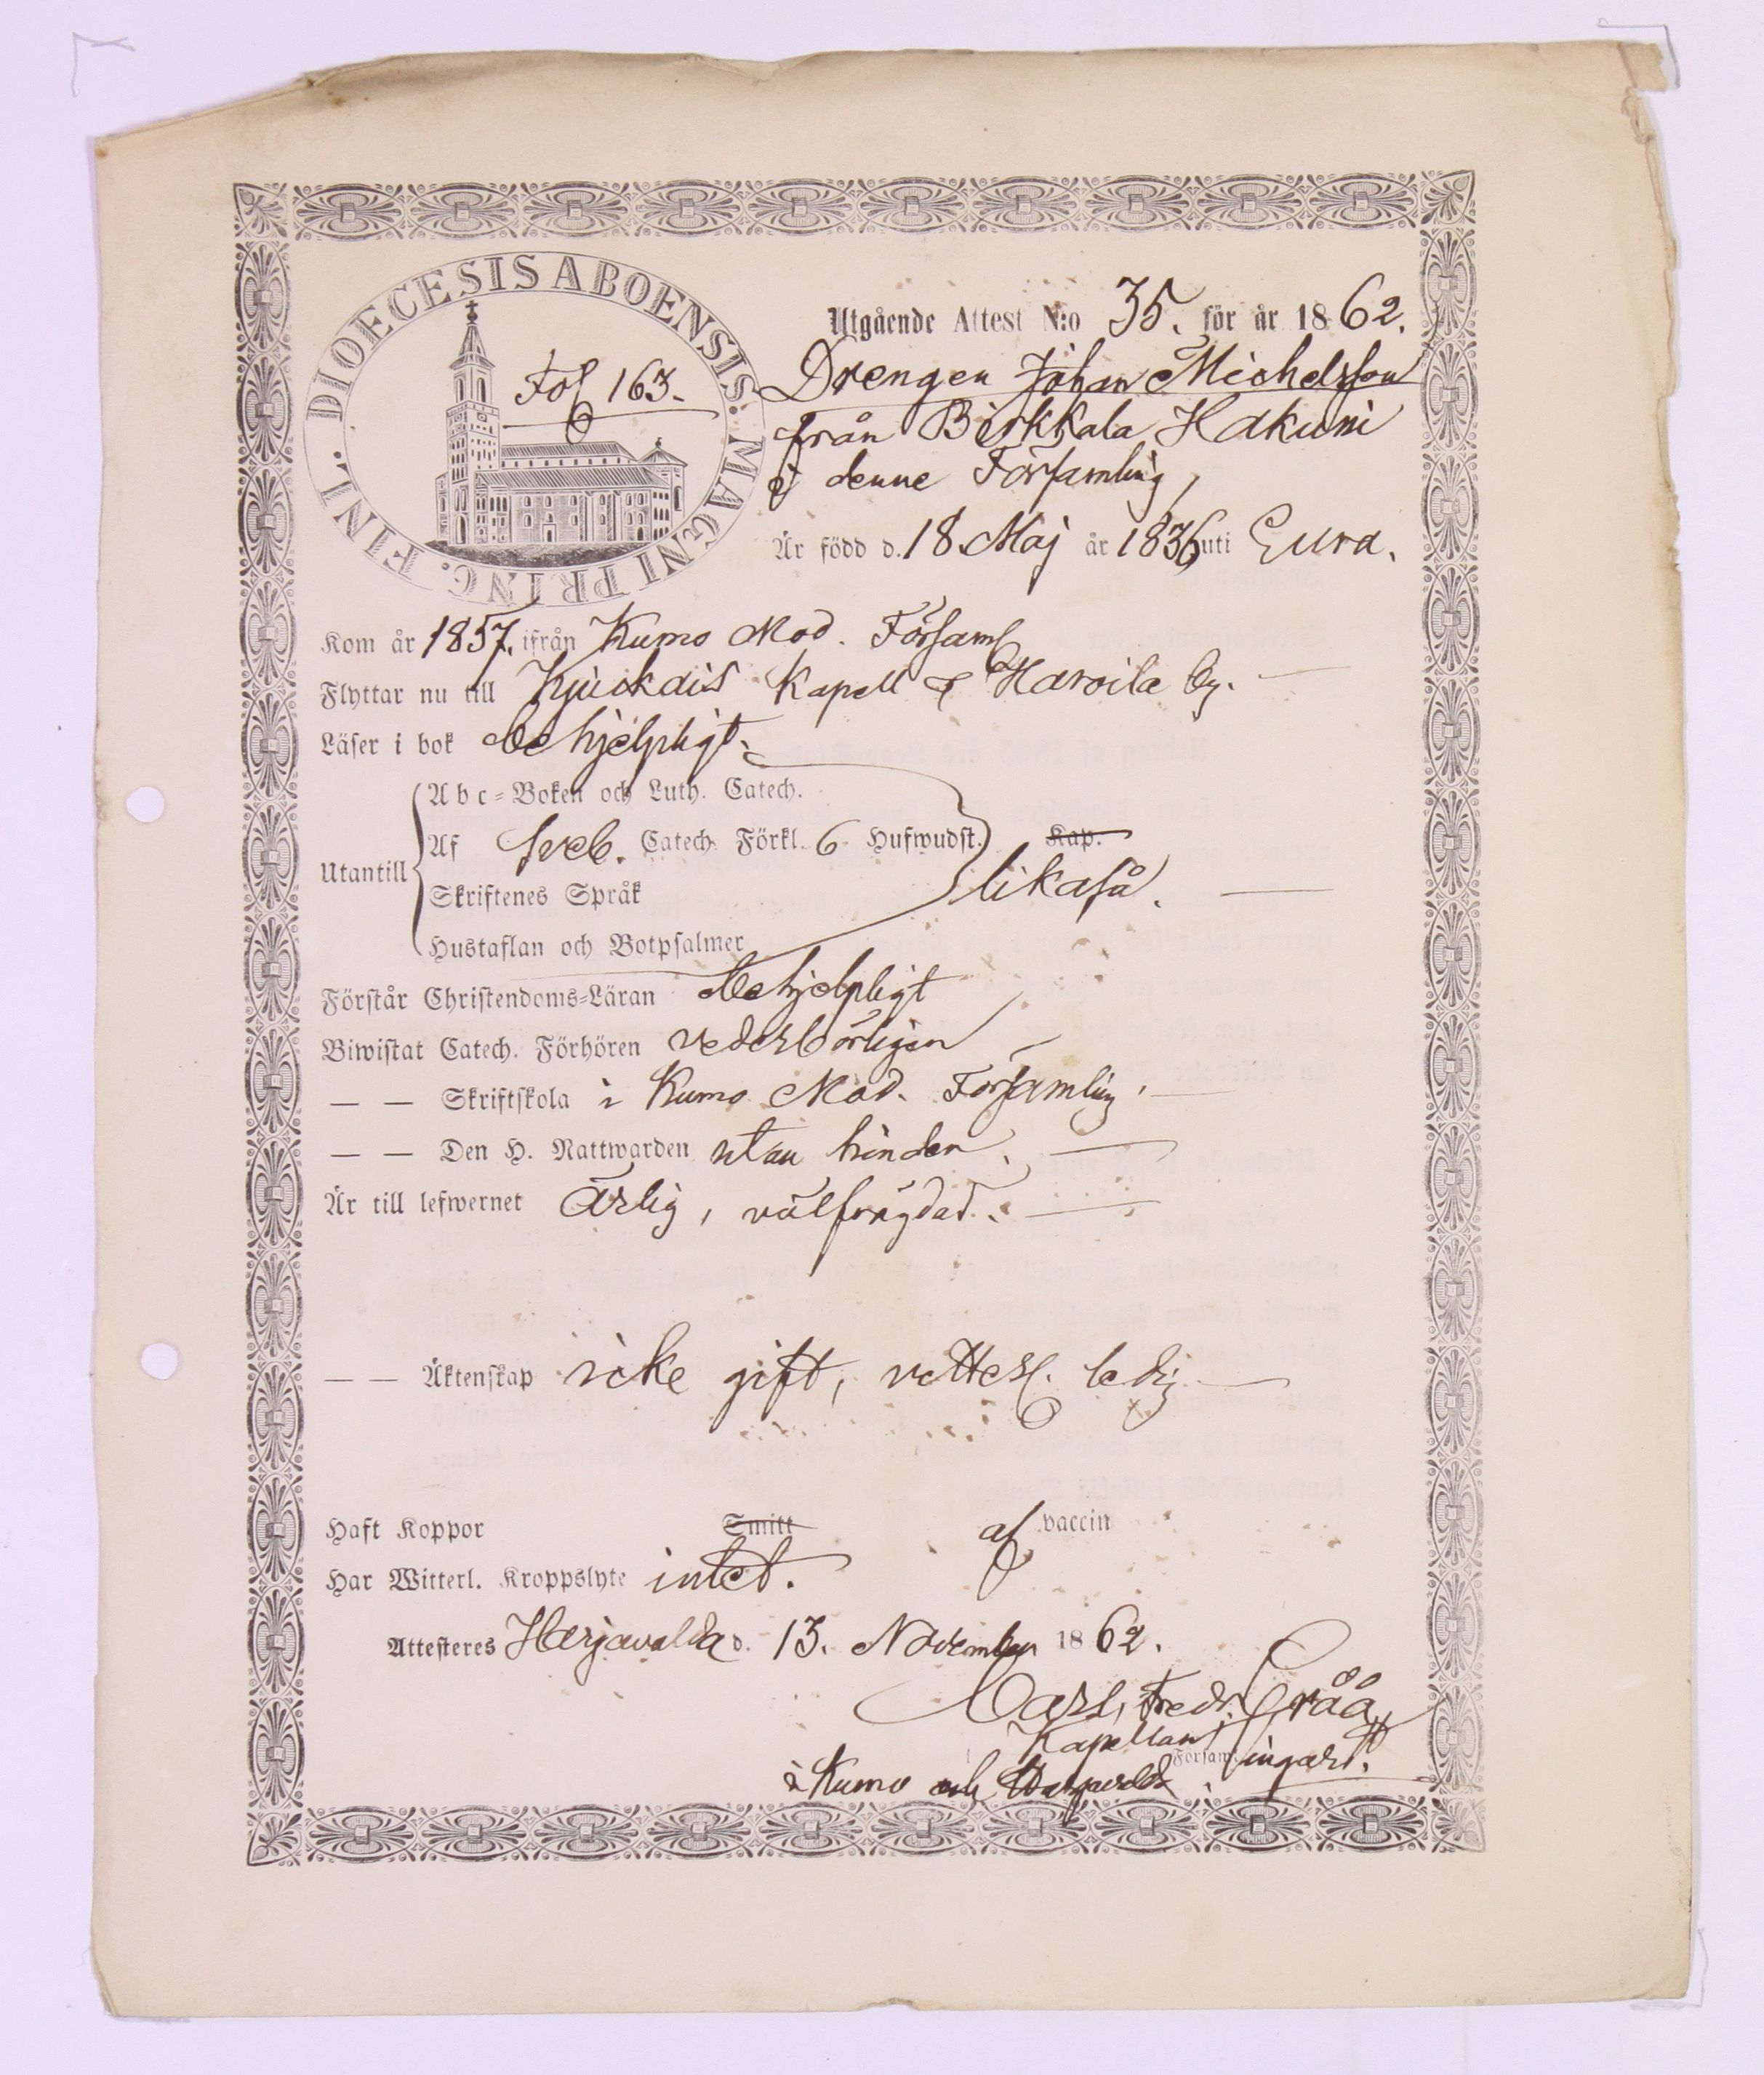 DIOECESIS ABOENSIS. MAGNI PRINC. FINL.
Fol 163.
Utgående Attest N:o 35. för år 1862.
Drengen Johan Michelsson
från Birkkala Hakuni
i denne Församling,
Är född d. 18 Maj år 1836 uti Eura.
Kom år 1857. ifrån Kumo Mod. Församl
Flyttar nu till Kjuikais Kapell & Harola by.
Läser i bok behjelpligt.
Utantill
Abc-Boken och Luth. Catech.
Af Sveb. Catech. Förkl. 6 Hufwudst. Kap.
likaså.
Skriftenes Språk
Hustaflan och Botpsalmer
Förstår Christendoms-Läran behjelpligt
Biwistat Catech. Förhören vederbörligen
— — Skriftskola i Kumo Mod. Församling.
— — Den H. Nattwarden utan hinder.
Är till lefwernet Ärlig, välfrägdad.
— — Äktenskap icke gift, vetterl. ledig
Haft Koppor Smitt af vaccin
Har Witterl. Kroppslyte intet.
Attesteres Harjavalda d. 13. November 1862.
Carl Fredr. Gråå
Kapellan
i Kumo och Harjavalda Församlingar.